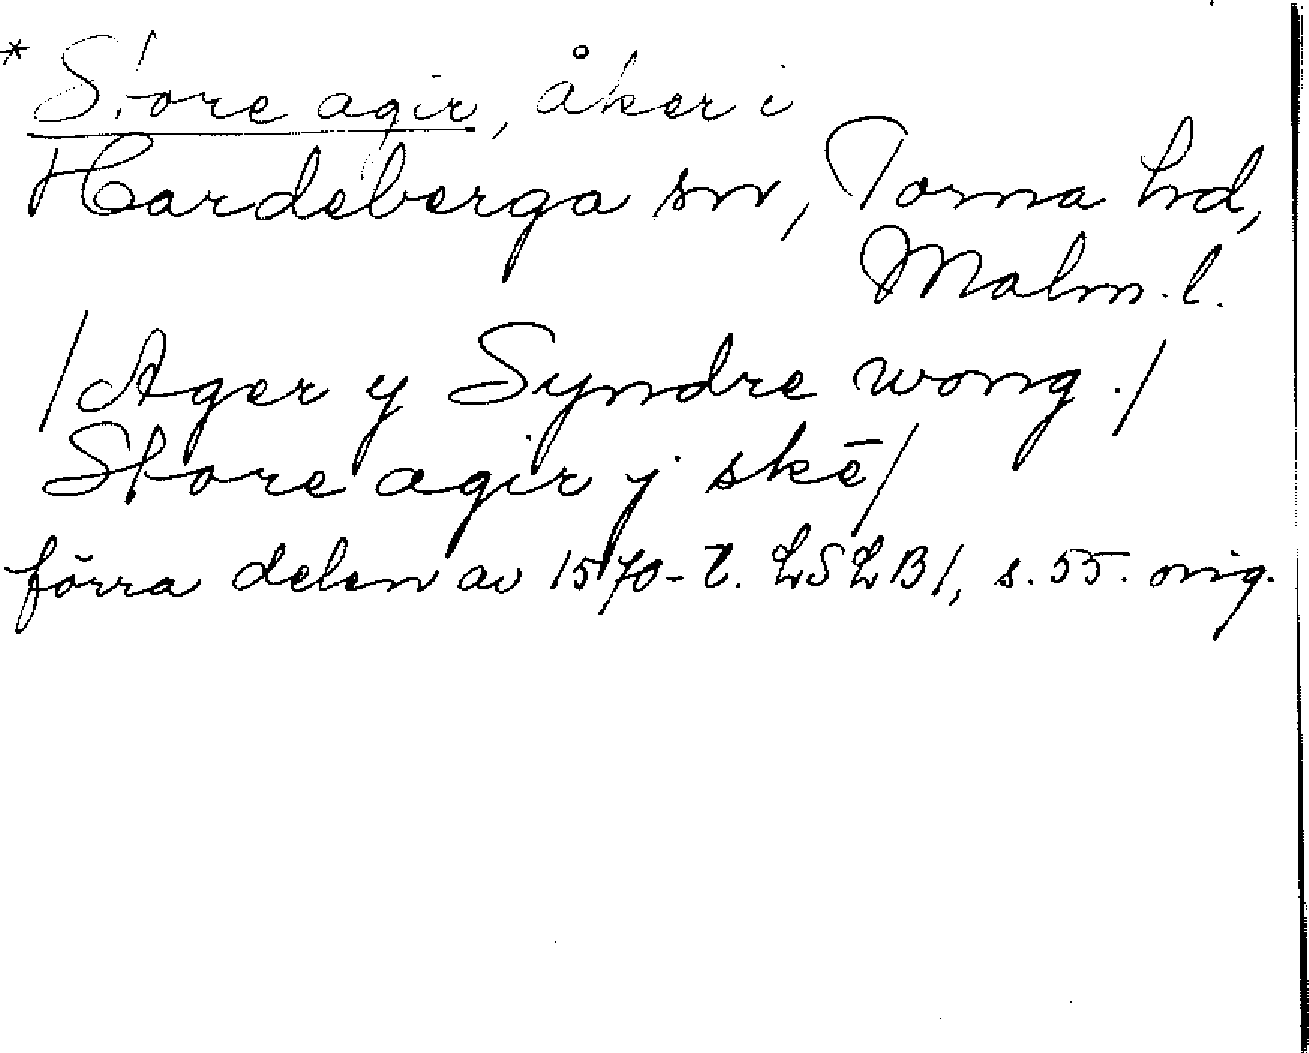 * Store agir, åker i
Hardeberga sn, Torna hd,
Malm. l.
/Ager y Syndre wong./
Store agir j skē/
förra delen av 1570-t. LSLB1, s. 55. orig.